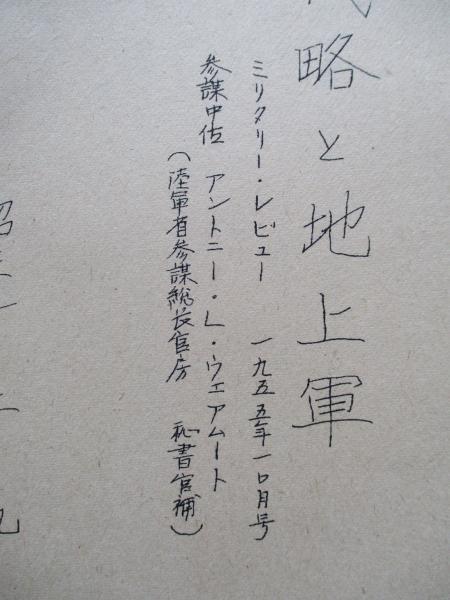 略と地上軍
ミリタリー・レビュー 一九五五年一〇月号
参謀中佐 アントニー・L・ウエアムート
(陸軍省参謀総長官房 秘書官補)
昭